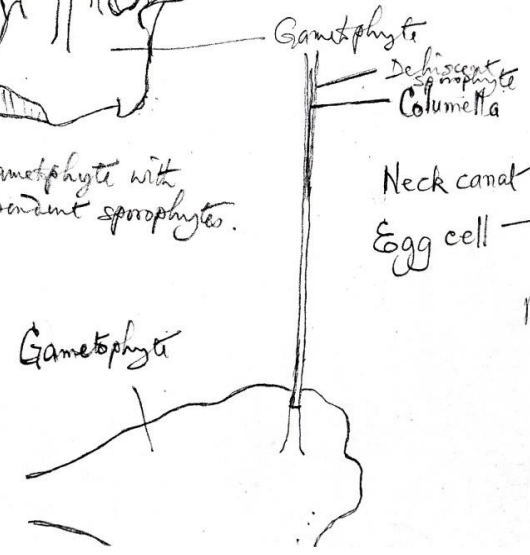 Gametophyte
Dehiscent
sporophyte
Columella
ametphyte with
endent sporophytes.
Neck canal
Egg cell
Gametophyte